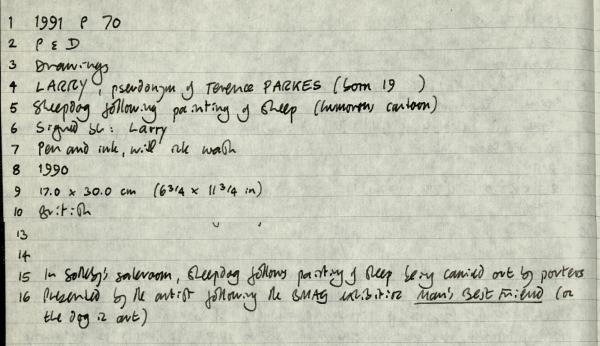 1 1991 P 70
2 P & D
3 Drawings
4 LARRY, pseudonym of Terence PARKES (born 19 )
5 Sheepdog following painting of sheep (humorous cartoon)
6 Signed bl: Larry
7 Pen and ink, with ink wash
8 1990
9 17.0 x 30.0 cm (6 3/4 x 11 3/4 in)
10 British
13
14
15 In Sotheby's saleroom, sheepdog follows painting of sheep being carried out by porters
16 Presented by the artist following the BMAG exhibition Man's Best Friend (or
the Dog in art)